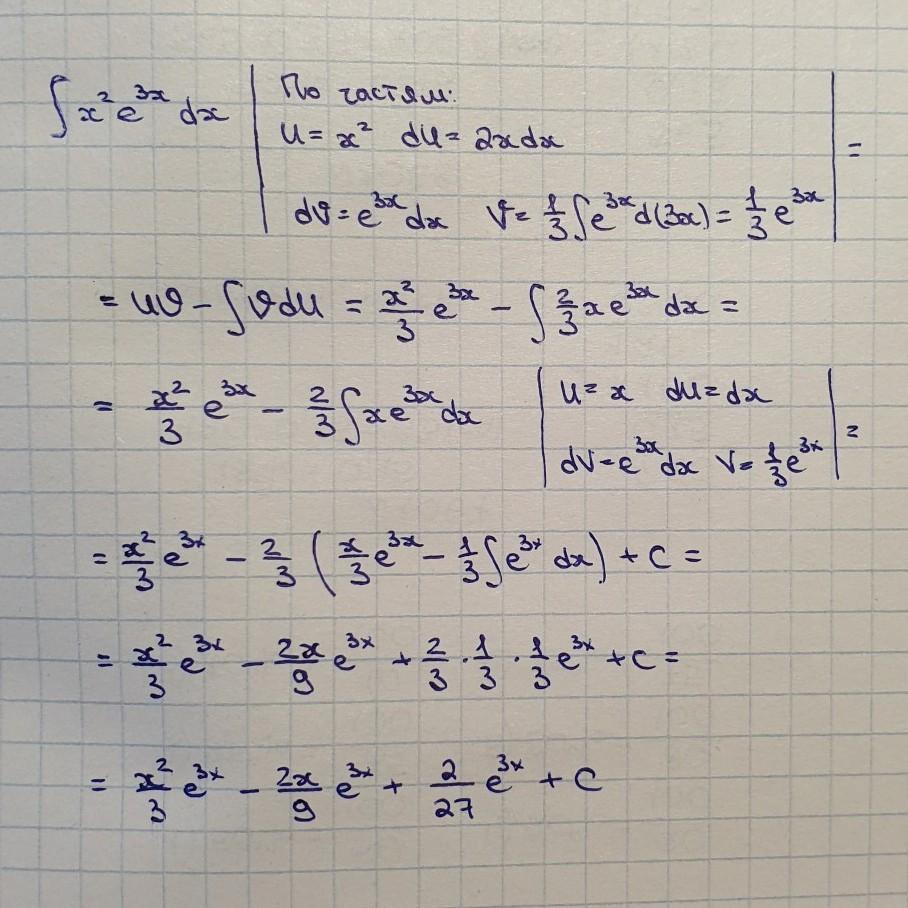 ∫x²e³ˣdx | По частям:
u = x² du = 2xdx
dv = e³ˣdx v = 1/3 ∫e³ˣd(3x) = 1/3 e³ˣ | =
= uv - ∫vdu = x²/3 e³ˣ - ∫ 2/3 xe³ˣdx =
= x²/3 e³ˣ - 2/3 ∫xe³ˣdx | u = x du = dx
dv = e³ˣdx v = 1/3 e³ˣ | =
= x²/3 e³ˣ - 2/3 (x/3 e³ˣ - 1/3 ∫e³ˣdx) + C =
= x²/3 e³ˣ - 2x/9 e³ˣ + 2/3 · 1/3 · 1/3 e³ˣ + C =
= x²/3 e³ˣ - 2x/9 e³ˣ + 2/27 e³ˣ + C